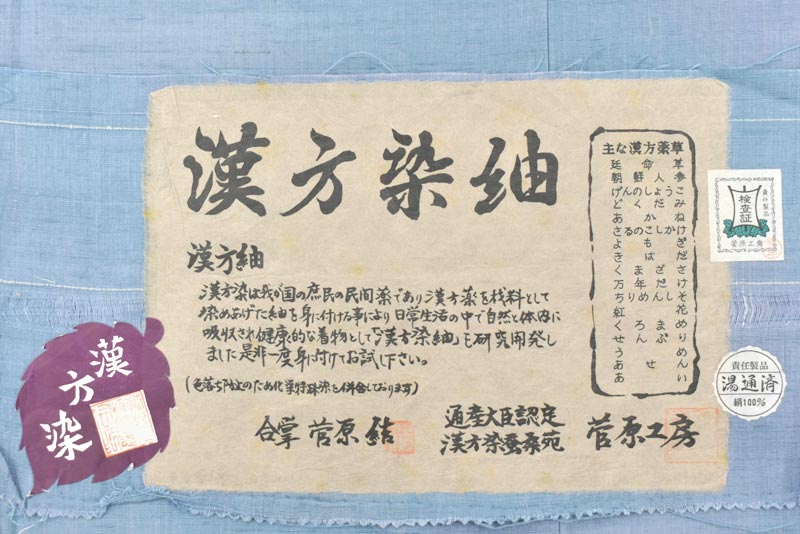 漢方染紬
漢方紬
漢方染は我が国の庶民の民間薬であり漢方薬を材料として
染めあげた紬を身に付ける事により日常生活の中で自然と体内に
吸収され健康的な着物として「漢方染紬」を研究開発し
ました是非一度身に付けてお試し下さい。
(色落ち防止のため化学特殊染を併合しております)
合掌 菅原 結
通産大臣認定
漢方染蚕桑苑
菅原工房
主な漢方薬草
延命草
朝鮮人参
げんのしょうこ
どくだみ
あかね
さるのこしかけ
よもぎ
きはだ
くまざさ
万年だけ
ちりめんしそ
紅花
くろまめ
せんぶり
うめ
あせん
あい
漢方染
責任製品
検査証
菅原工房
責任製品
湯通済
絹100%